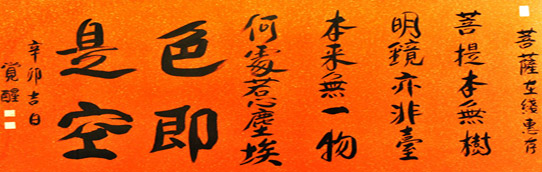 菩薩在綫惠存
菩提本無樹
明鏡亦非臺
本来無一物
何處惹塵埃
色即
是空
辛卯吉日
覺醒